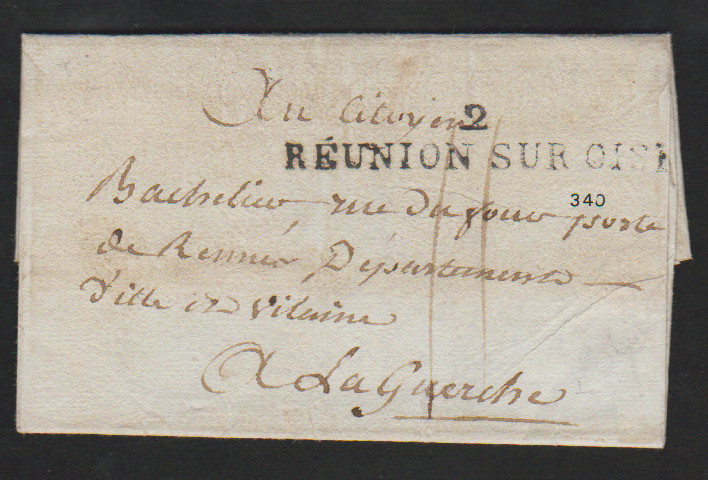 Au Citoyen
2
RÉUNION SUR OISE
Bachelier, rue du four porte
340
de Rennes, Département
d'ille et vilaine
A La Guerche